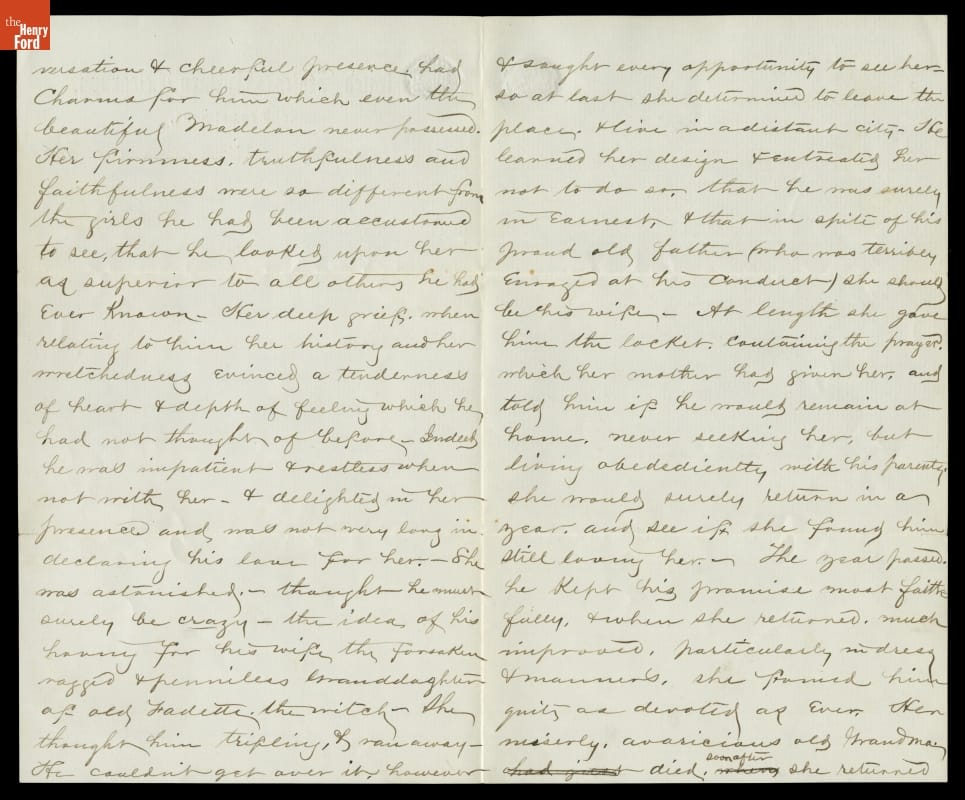 the
Henry
Ford
versation & cheerful presence, had
Charms for him which even the
beautiful Madelon never possessed.
Her firmness, truthfulness and
faithfulness were so different from
the girls he had been accustomed
to see, that he looked upon her
as superior to all others he had
Ever Known - Her deep grief, when
relating to him her history and her
wretchedness evinced a tenderness
of heart & depth of feeling which he
had not thought of before - Indeed
he was impatient & restless when
not with her - & delighted in her
presence and was not very long in
declaring his love for her. - She
was astonished. - thought he must
surely be crazy - the idea of his
having for his wife the forsaken
ragged & penniless Granddaughter
of old Fadette, the witch - She
thought him trifling, & ran away -
He couldn't get over it, however
& sought every opportunity to see her -
so at last she determined to leave the
place. & live in a distant city - He
learned her design & entreated her
not to do so, that he was surely
in Earnest, & that in spite of his
proud old father (who was terribly
Enraged at his conduct) she should
be his wife - At length she gave
him the locket. containing the prayer.
which her mother had given her, and
told him if he would remain at
home. never seeking her, but
living obededientty with his parents,
she would surely return in a
year. and see if she found him
still loving her. - The year passed.
he Kept his promise most faith
fully, & when she returned. much
improved, particularly in dress
& manners. she found him
quite as devoted as Ever. Her
miserly, avaricious old Grandma
had died, soon after she returned